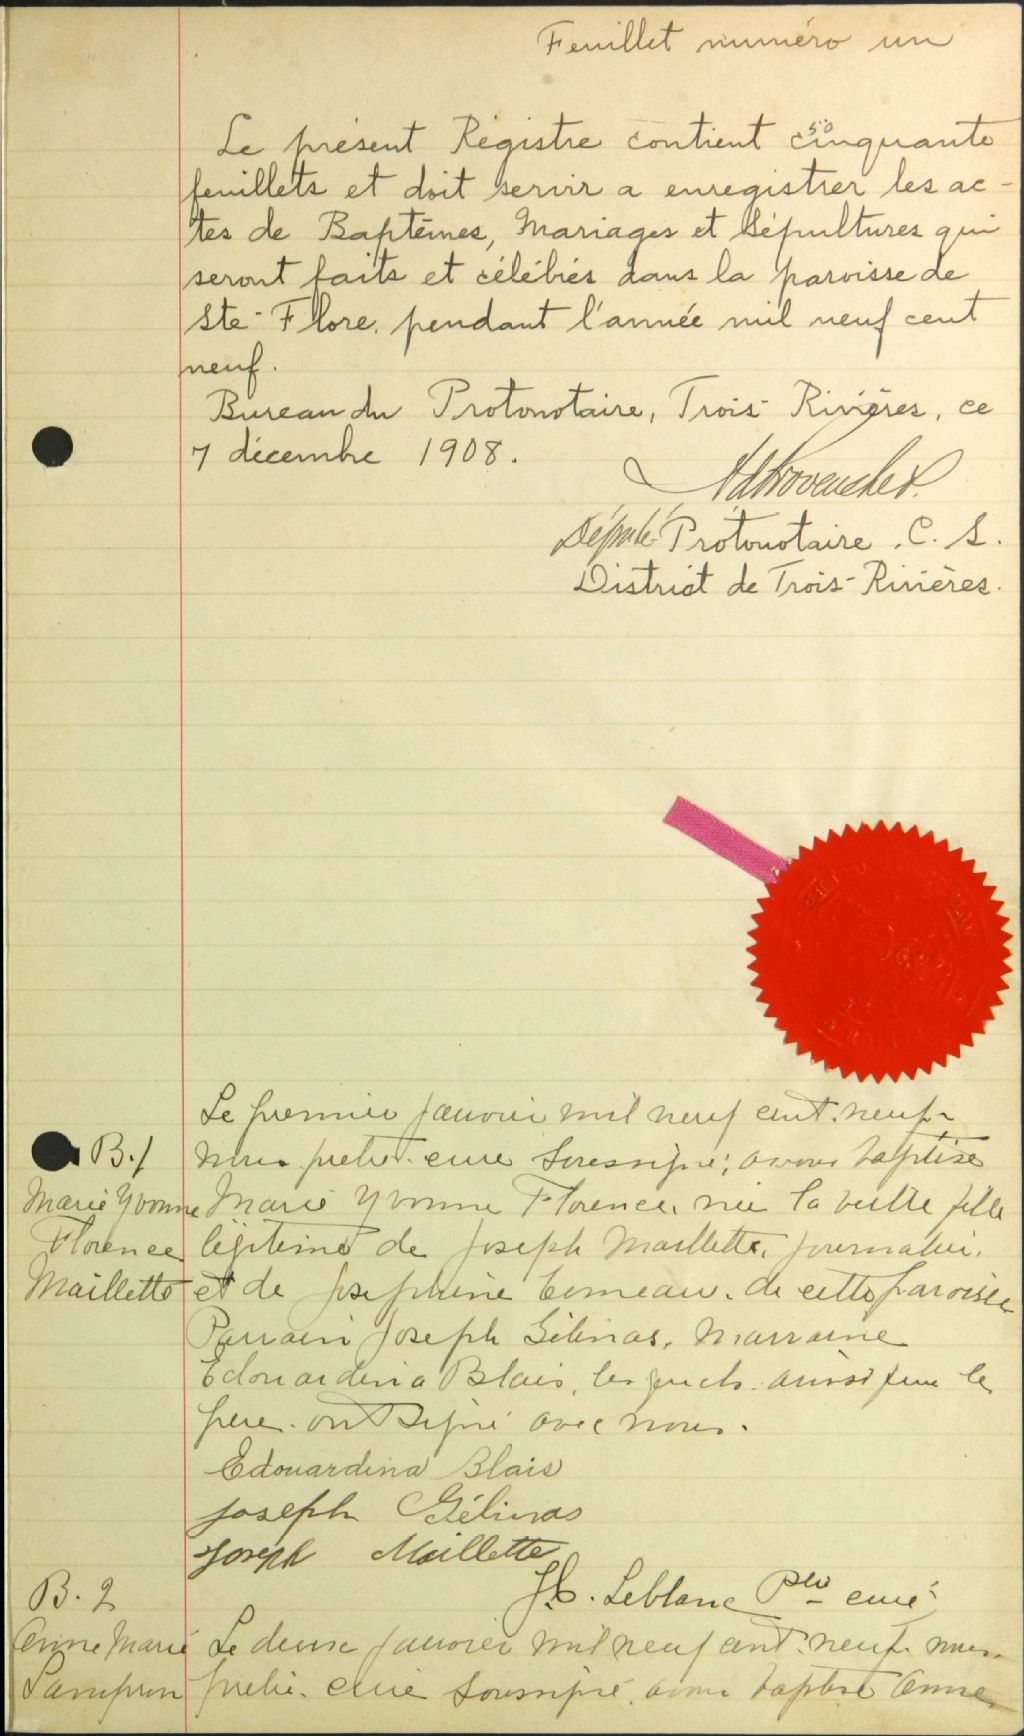 Feuillet numéro un
Le présent Régistre contient cinquante
50
feuillets et doit servir a enregistrer les ac-
tes de Baptêmes, Mariages et Sépultures qui
seront faits et célébrés dans la paroisse de
Ste-Flore, pendant l'année mil neuf cent
neuf.
Bureau du Protonotaire, Trois-Rivières, ce
7 décembre 1908.
Député Protonotaire, C. S.
District de Trois-Rivières.
Le premier janvier mil neuf cent neuf
B.1
nous prêtre curé soussigné, avons baptisé
Marie Yvonne
Florence
Maillette
Marie Yvonne Florence, née la veille fille
légitime de Joseph Maillette, journalier,
et de Joséphine Comeau, de cette paroisse
Parrain Joseph Gélinas, Marraine
Edouardina Blais, lesquels aussi que le
père ont signé avec nous.
Edouardina Blais
Joseph Gélinas
Joseph Maillette
Leblanc Ptre curé
B. 2
Anne Marie
Le deux janvier mil neuf cent neuf nous
prêtre curé soussigné avons baptisé Anne